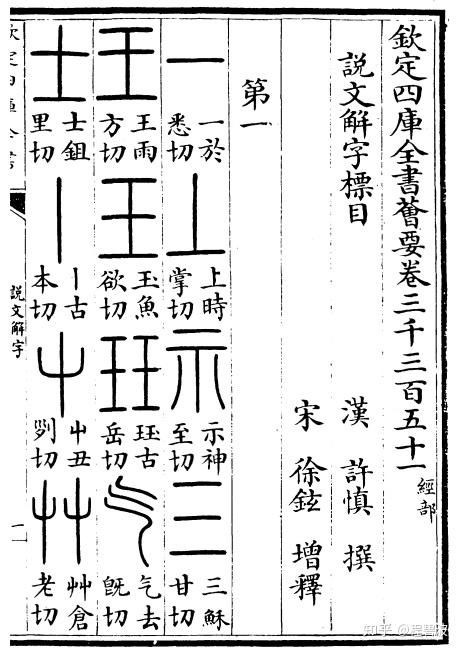 欽定四庫全書薈要卷三千三百五十一 經部
説文解字標目
漢 許慎 撰
宋 徐鉉 增釋
第一
一 一於悉切 丄 上時掌切 示 示神至切 三 三穌甘切
王 王雨方切 玉 玉魚欲切 玨 玨古岳切 气 气去旣切
士 士鉏里切 丨 丨古本切 屮 屮丑列切 艸 艸倉老切
欽定四庫全書
説文解字
一
知乎